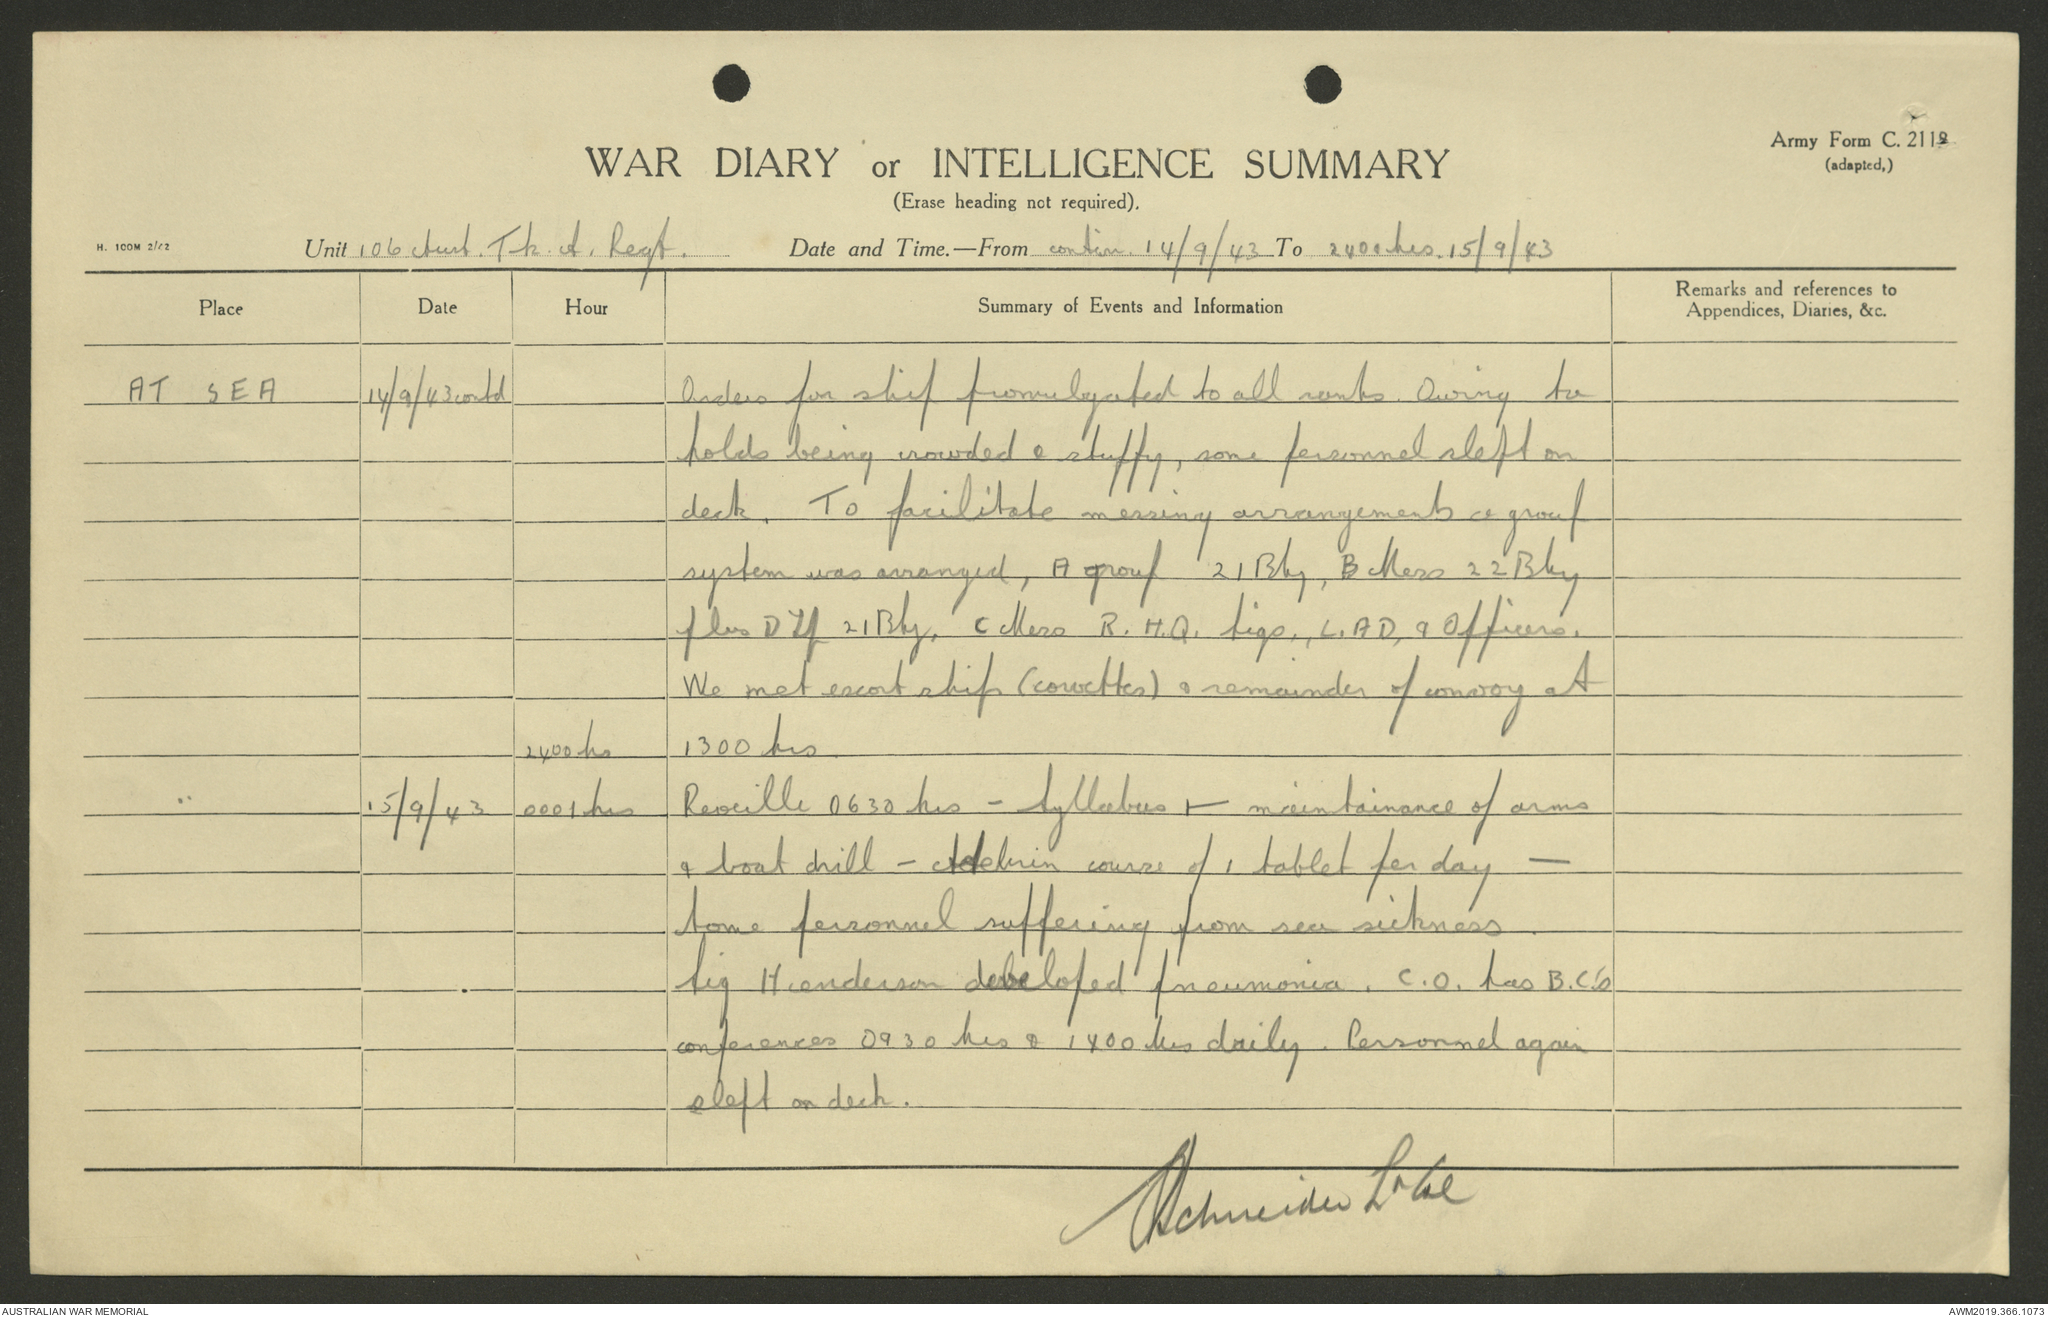 Army Form C. 2112
(adapted,)
WAR DIARY or INTELLIGENCE SUMMARY
(Erase heading not required).
H. 100M 2/42
Unit 106 Aust. Tk. A. Regt. Date and Time.—From contin. 14/9/43 To 2400 hrs. 15/9/43
Place Date Hour Summary of Events and Information Remarks and references to
Appendices, Diaries, &c.
AT SEA 14/9/43 contd Orders for ship promulgated to all ranks. Owing to
holds being crowded & stuffy, some personnel slept on
deck. To facilitate messing arrangements a group
system was arranged, A group 21 Bty, B Mess 22 Bty
plus D Tp 21 Bty, C Mess R.H.Q. Sigs., L.A.D, & Officers.
We met escort ships (corvettes) & remainder of convoy at
2400 hs 1300 hrs
" 15/9/43 0001 hrs Reveille 0630 hrs - Syllabus - maintainance of arms
& boat drill - Atebrin course of 1 tablet per day —
Some personnel suffering from sea sickness.
Sig Henderson developed pneumonia. C.O. has B.C.'s
conferences 0930 hrs & 1400 hrs daily. Personnel again
slept on deck.
Schneider Lt Col
AUSTRALIAN WAR MEMORIAL
AWM2019.366.1073